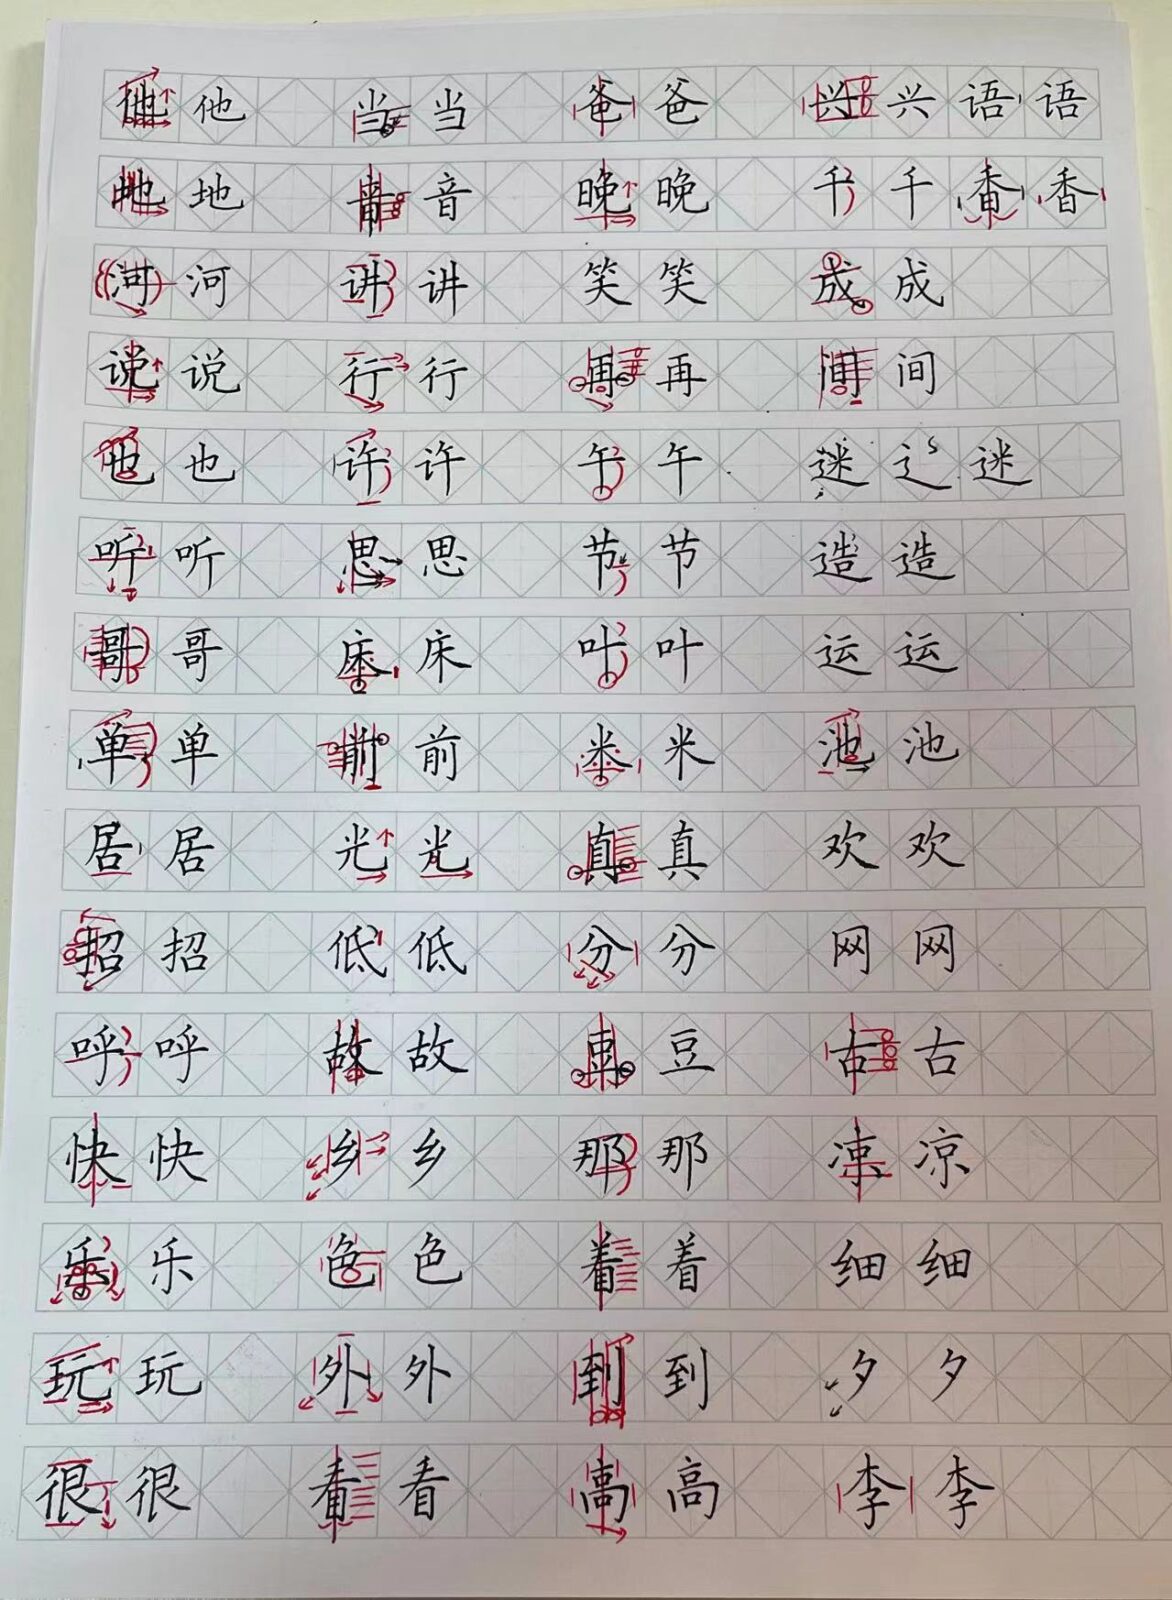 他 他 当 当 爸 爸 兴 兴 语 语
地 地 音 音 晚 晚 千 千 香 香
河 河 讲 讲 笑 笑 成 成
说 说 行 行 再 再 间 间
也 也 许 许 午 午 迷 辶 迷
听 听 思 思 节 节 造 造
哥 哥 床 床 叶 叶 运 运
单 单 前 前 米 米 池 池
居 居 光 光 真 真 欢 欢
招 招 低 低 分 分 网 网
呼 呼 故 故 豆 豆 古 古
快 快 乡 乡 那 那 凉 凉
乐 乐 色 色 着 着 细 细
玩 玩 外 外 到 到 夕 夕
很 很 看 看 高 高 李 李